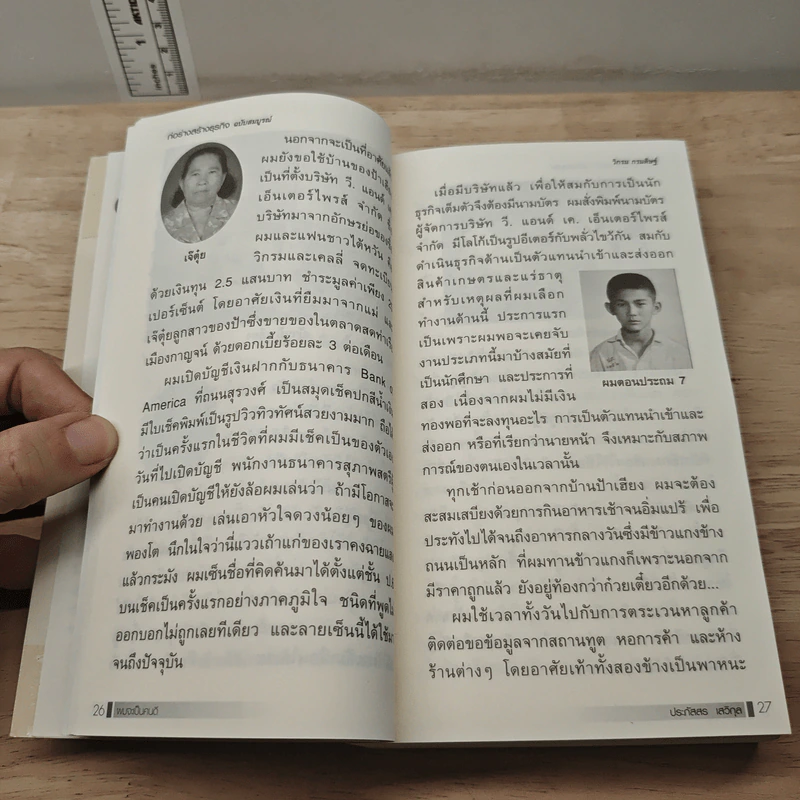 ก่อร่างสร้างธุรกิจ ฉบับสมบูรณ์
นอกจากจะเป็นที่อาศัยแล้ว
ผมยังขอใช้บ้านของป้าเฮียง
เป็นที่ตั้งบริษัท วี. แอนด์
เอ็นเตอร์ไพรส์ จำกัด
บริษัทมาจากอักษรย่อของ
ผมและแฟนชาวไต้หวัน คือ
วิกรมและเคลลี่ จดทะเบียน
เจ๊ตุ๋ย
ด้วยเงินทุน 2.5 แสนบาท ชำระมูลค่าเพียง
เปอร์เซ็นต์ โดยอาศัยเงินที่ยืมมาจากแม่
เจ๊ตุ๋ยลูกสาวของป้าซึ่งขายของในตลาดสด
เมืองกาญจน์ ด้วยดอกเบี้ยร้อยละ 3 ต่อเดือน
ผมเปิดบัญชีเงินฝากกับธนาคาร Bank of
America ที่ถนนสุรวงศ์ เป็นสมุดเช็คปกสีน้ำเงิน
มีใบเช็คพิมพ์เป็นรูปวิวทิวทัศน์สวยงามมาก ถือได้
ว่าเป็นครั้งแรกในชีวิตที่ผมมีเช็คเป็นของตัวเอง
วันที่ไปเปิดบัญชี พนักงานธนาคารสุภาพสตรี
เป็นคนเปิดบัญชีให้ยังล้อผมเล่นว่า ถ้ามีโอกาสจะ
มาทำงานด้วย เล่นเอาหัวใจดวงน้อยๆ ของผม
พองโต นึกในใจว่านี่แววเถ้าแก่ของเราคงฉายแสง
แล้วกระมัง ผมเซ็นชื่อที่คิดค้นมาได้ตั้งแต่ชั้น ป.6
บนเช็คเป็นครั้งแรกอย่างภาคภูมิใจ ชนิดที่พูดไม่
ออกบอกไม่ถูกเลยทีเดียว และลายเซ็นนี้ได้ใช้มา
จนถึงปัจจุบัน
26 ผมจะเป็นคนดี
วิกรม กรมดิษฐ์
เมื่อมีบริษัทแล้ว เพื่อให้สมกับการเป็นนัก
ธุรกิจเต็มตัวจึงต้องมีนามบัตร ผมสั่งพิมพ์นามบัตร
ผู้จัดการบริษัท วี. แอนด์ เค. เอ็นเตอร์ไพรส์
จำกัด มีโลโก้เป็นรูปอีเตอร์กับพลั่วไขว้กัน สมกับ
ดำเนินธุรกิจด้านเป็นตัวแทนนำเข้าและส่งออก
สินค้าเกษตรและแร่ธาตุ
สำหรับเหตุผลที่ผมเลือก
ทำงานด้านนี้ ประการแรก
เป็นเพราะผมพอจะเคยจับ
งานประเภทนี้มาบ้างสมัยที่
เป็นนักศึกษา และประการที่
สอง เนื่องจากผมไม่มีเงิน
ผมตอนประถม 7
ทองพอที่จะลงทุนอะไร การเป็นตัวแทนนำเข้าและ
ส่งออก หรือที่เรียกว่านายหน้า จึงเหมาะกับสภาพ
การณ์ของตนเองในเวลานั้น
ทุกเช้าก่อนออกจากบ้านป้าเฮียง ผมจะต้อง
สะสมเสบียงด้วยการกินอาหารเช้าจนอิ่มแปร้ เพื่อ
ประทังไปได้จนถึงอาหารกลางวันซึ่งมีข้าวแกงข้าง
ถนนเป็นหลัก ที่ผมทานข้าวแกงก็เพราะนอกจาก
มีราคาถูกแล้ว ยังอยู่ท้องกว่าก๋วยเตี๋ยวอีกด้วย...
ผมใช้เวลาทั้งวันไปกับการตระเวนหาลูกค้า
ติดต่อขอข้อมูลจากสถานทูต หอการค้า และห้าง
ร้านต่างๆ โดยอาศัยเท้าทั้งสองข้างเป็นพาหนะ
ประภัสสร เสวิกุล 27